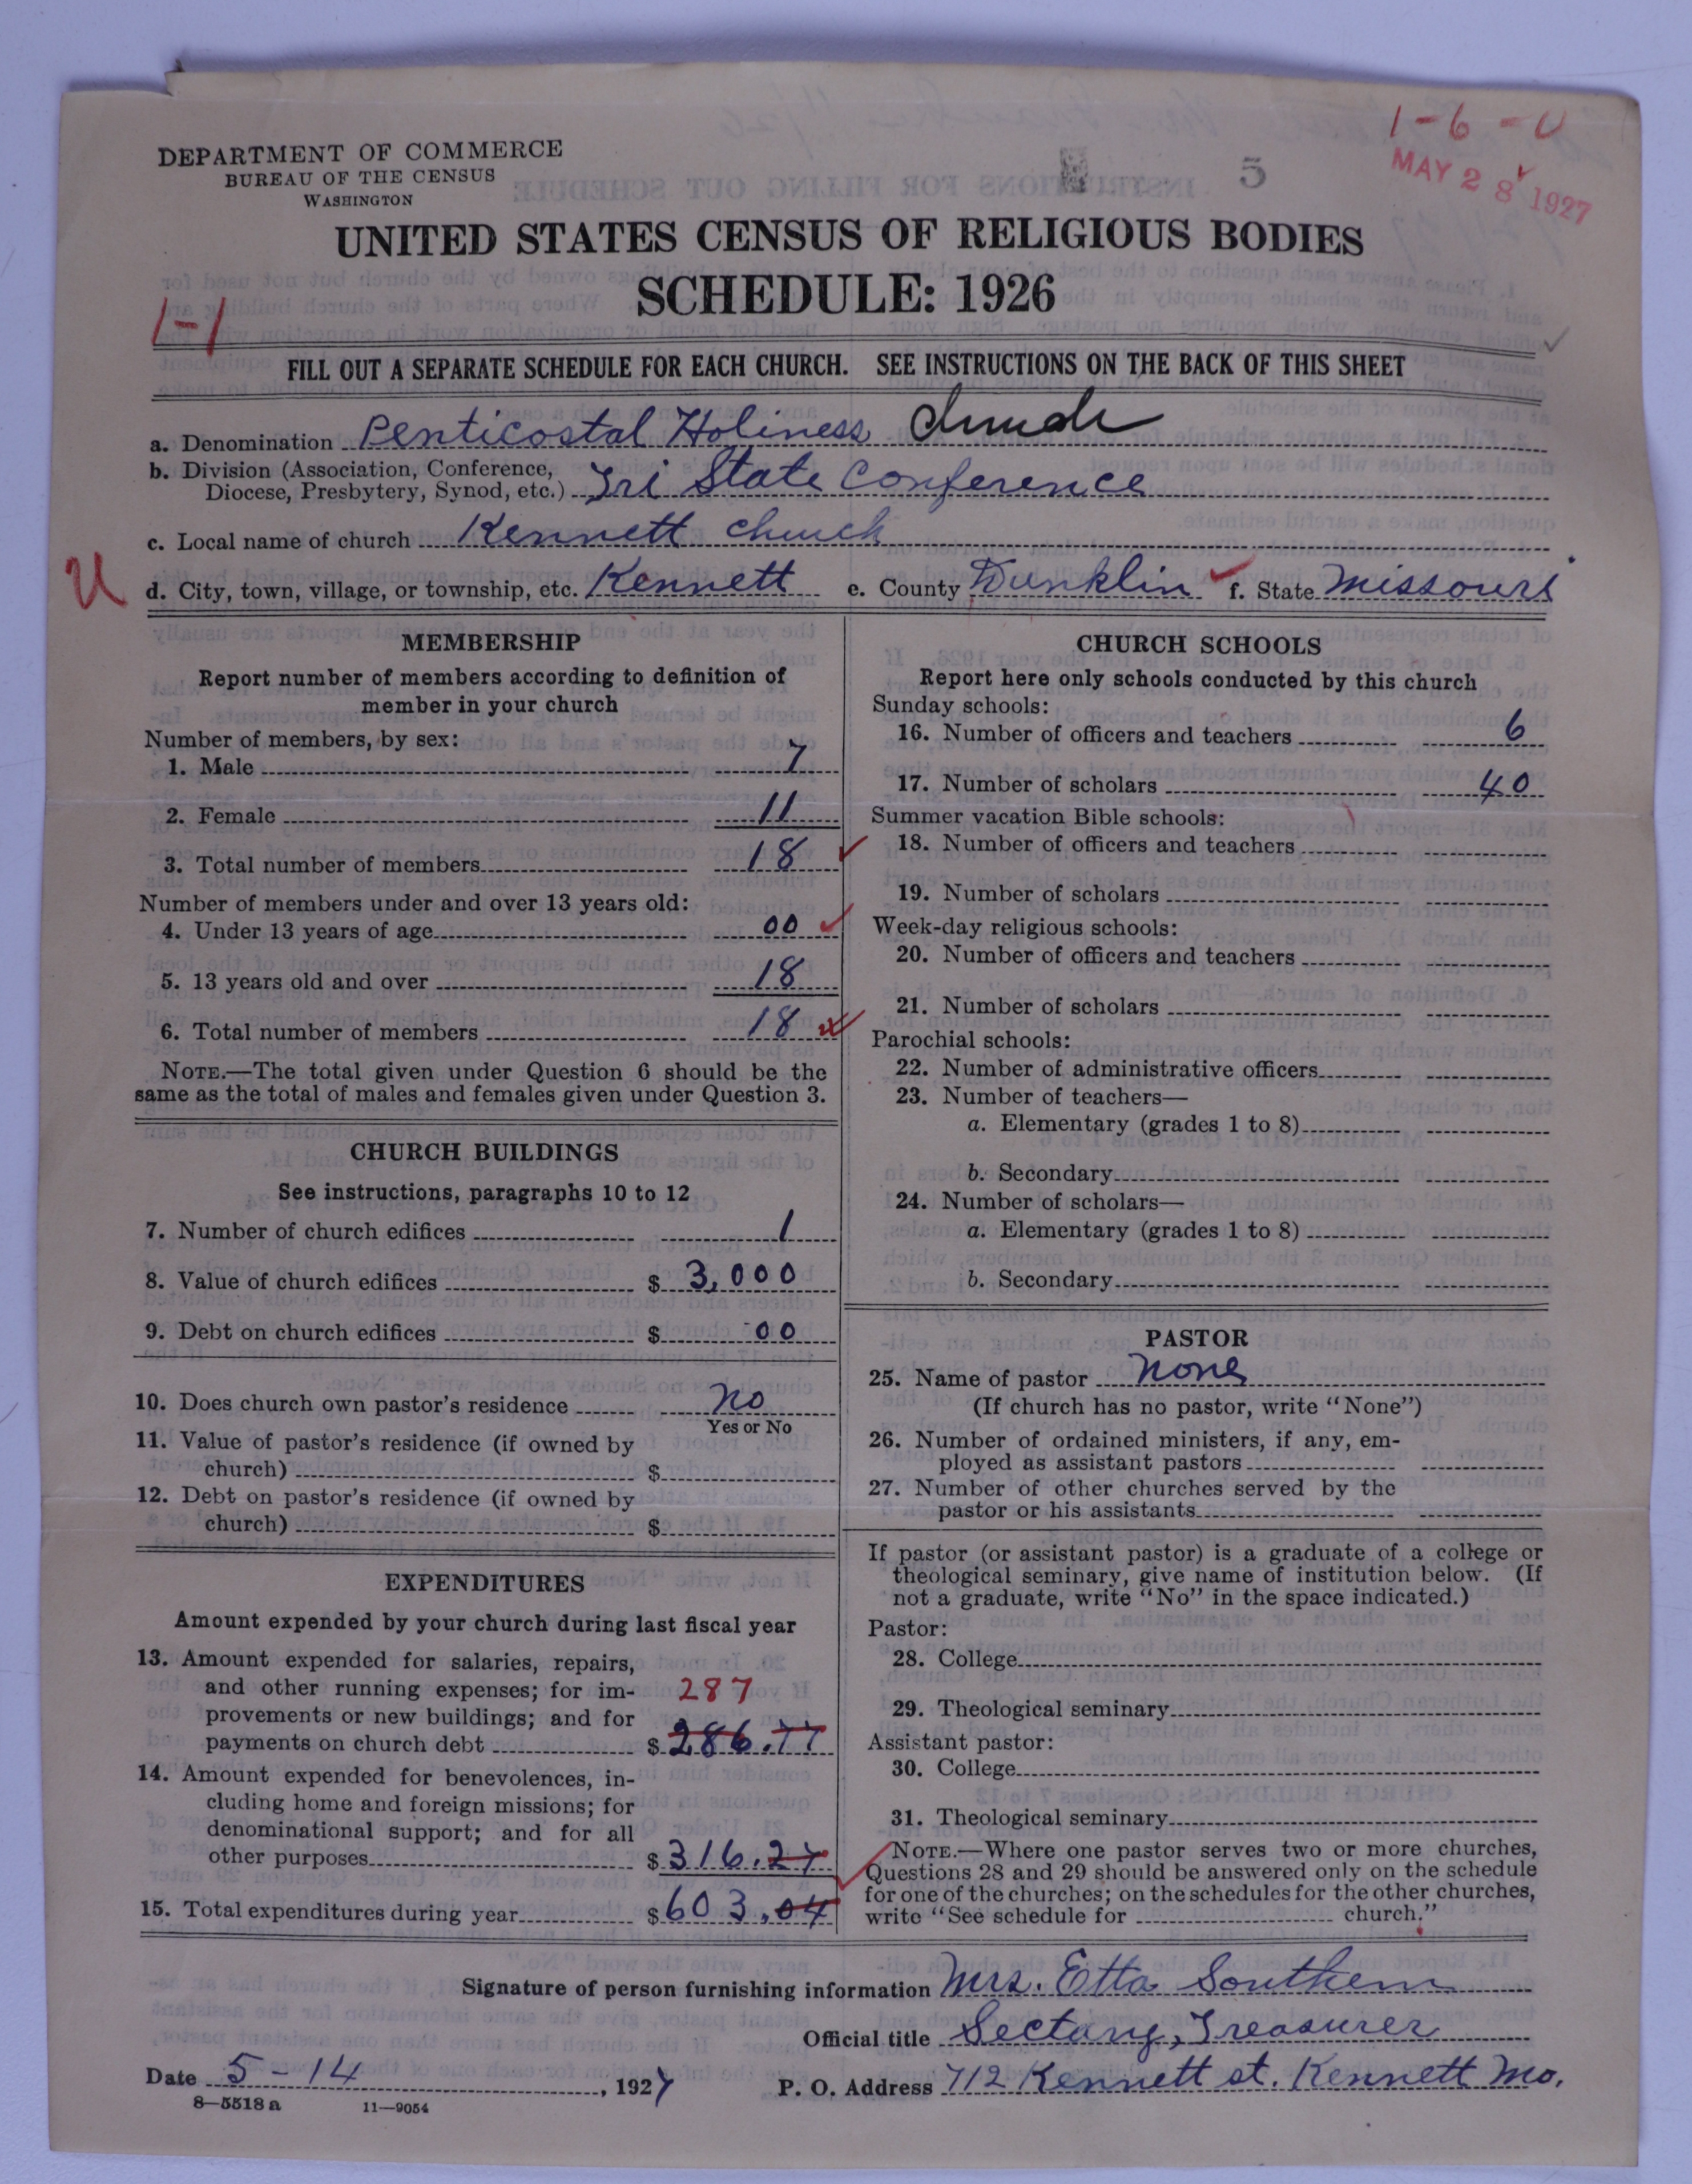 1-6-U
DEPARTMENT OF COMMERCE
BUREAU OF THE CENSUS
WASHINGTON
5
MAY 28 1927
UNITED STATES CENSUS OF RELIGIOUS BODIES
SCHEDULE: 1926
1-1
FILL OUT A SEPARATE SCHEDULE FOR EACH CHURCH. SEE INSTRUCTIONS ON THE BACK OF THIS SHEET
a. Denomination Penticostal Holiness church
b. Division (Association, Conference,
Diocese, Presbytery, Synod, etc.) Tri State Conference
c. Local name of church Kennett church
U
d. City, town, village, or township, etc. Kennett e. County Dunklin f. State Missouri
MEMBERSHIP
Report number of members according to definition of
member in your church
Number of members, by sex:
1. Male 7
2. Female 11
3. Total number of members 18
Number of members under and over 13 years old:
4. Under 13 years of age 00
5. 13 years old and over 18
6. Total number of members 18
NOTE.—The total given under Question 6 should be the
same as the total of males and females given under Question 3.
CHURCH BUILDINGS
See instructions, paragraphs 10 to 12
7. Number of church edifices 1
8. Value of church edifices $ 3,000
9. Debt on church edifices $ 00
10. Does church own pastor's residence no
Yes or No
11. Value of pastor's residence (if owned by
church) $
12. Debt on pastor's residence (if owned by
church) $
EXPENDITURES
Amount expended by your church during last fiscal year
13. Amount expended for salaries, repairs,
and other running expenses; for im- 287
provements or new buildings; and for
payments on church debt $ 286.77
14. Amount expended for benevolences, in-
cluding home and foreign missions; for
denominational support; and for all
other purposes $ 316.27
15. Total expenditures during year $ 603.04
CHURCH SCHOOLS
Report here only schools conducted by this church
Sunday schools:
16. Number of officers and teachers 6
17. Number of scholars 40
Summer vacation Bible schools:
18. Number of officers and teachers
19. Number of scholars
Week-day religious schools:
20. Number of officers and teachers
21. Number of scholars
Parochial schools:
22. Number of administrative officers
23. Number of teachers—
a. Elementary (grades 1 to 8)
b. Secondary
24. Number of scholars—
a. Elementary (grades 1 to 8)
b. Secondary
PASTOR
25. Name of pastor none
(If church has no pastor, write "None")
26. Number of ordained ministers, if any, em-
ployed as assistant pastors
27. Number of other churches served by the
pastor or his assistants
If pastor (or assistant pastor) is a graduate of a college or
theological seminary, give name of institution below. (If
not a graduate, write "No" in the space indicated.)
Pastor:
28. College
29. Theological seminary
Assistant pastor:
30. College
31. Theological seminary
NOTE.—Where one pastor serves two or more churches,
Questions 28 and 29 should be answered only on the schedule
for one of the churches; on the schedules for the other churches,
write "See schedule for church."
Signature of person furnishing information Mrs. Etta Southern
Official title Sectary, Treasurer
Date 5-14, 1927 P. O. Address 712 Kennett st. Kennett Mo.
8—5518 a 11—9054